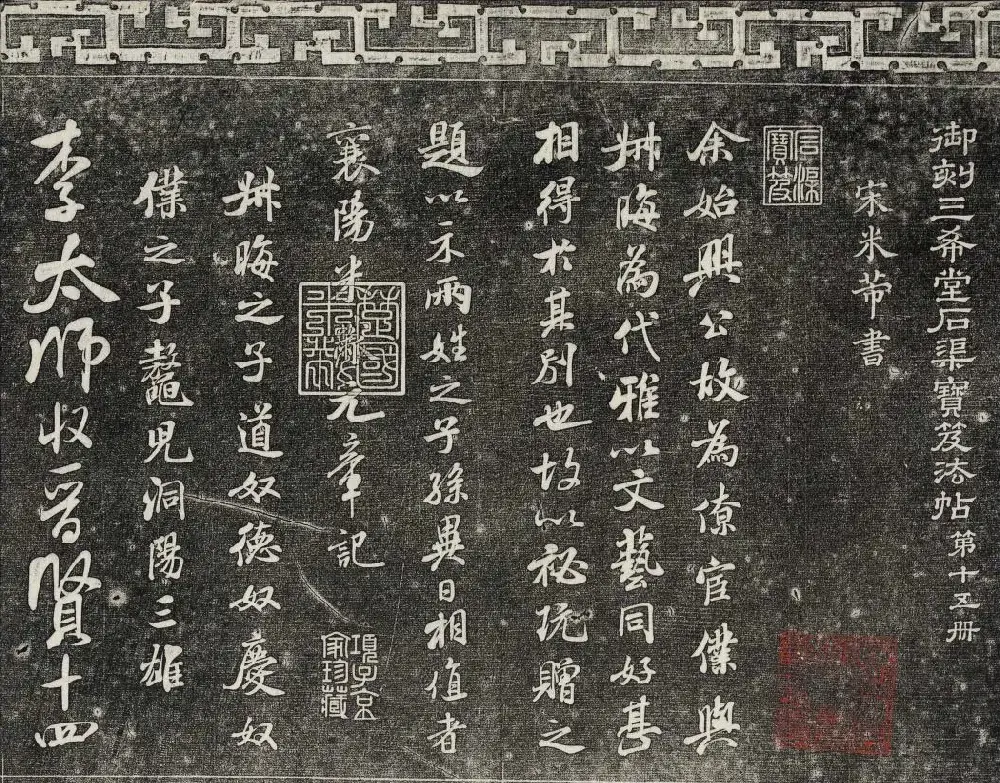 御刻三希堂石渠寶笈法帖第十五冊
宋米芾書
石渠寶笈
余始興公故為僚宦僕與
叔晦為代雅以文藝同好甚
相得於其別也故以祕玩贈之
題以示兩姓之子孫異日相值者
襄陽米黻元章記
楚國米芾
項子京家珍藏
叔晦之子道奴德奴慶奴
僕之子鼇兒洞陽三雄
李太師收晉賢十四